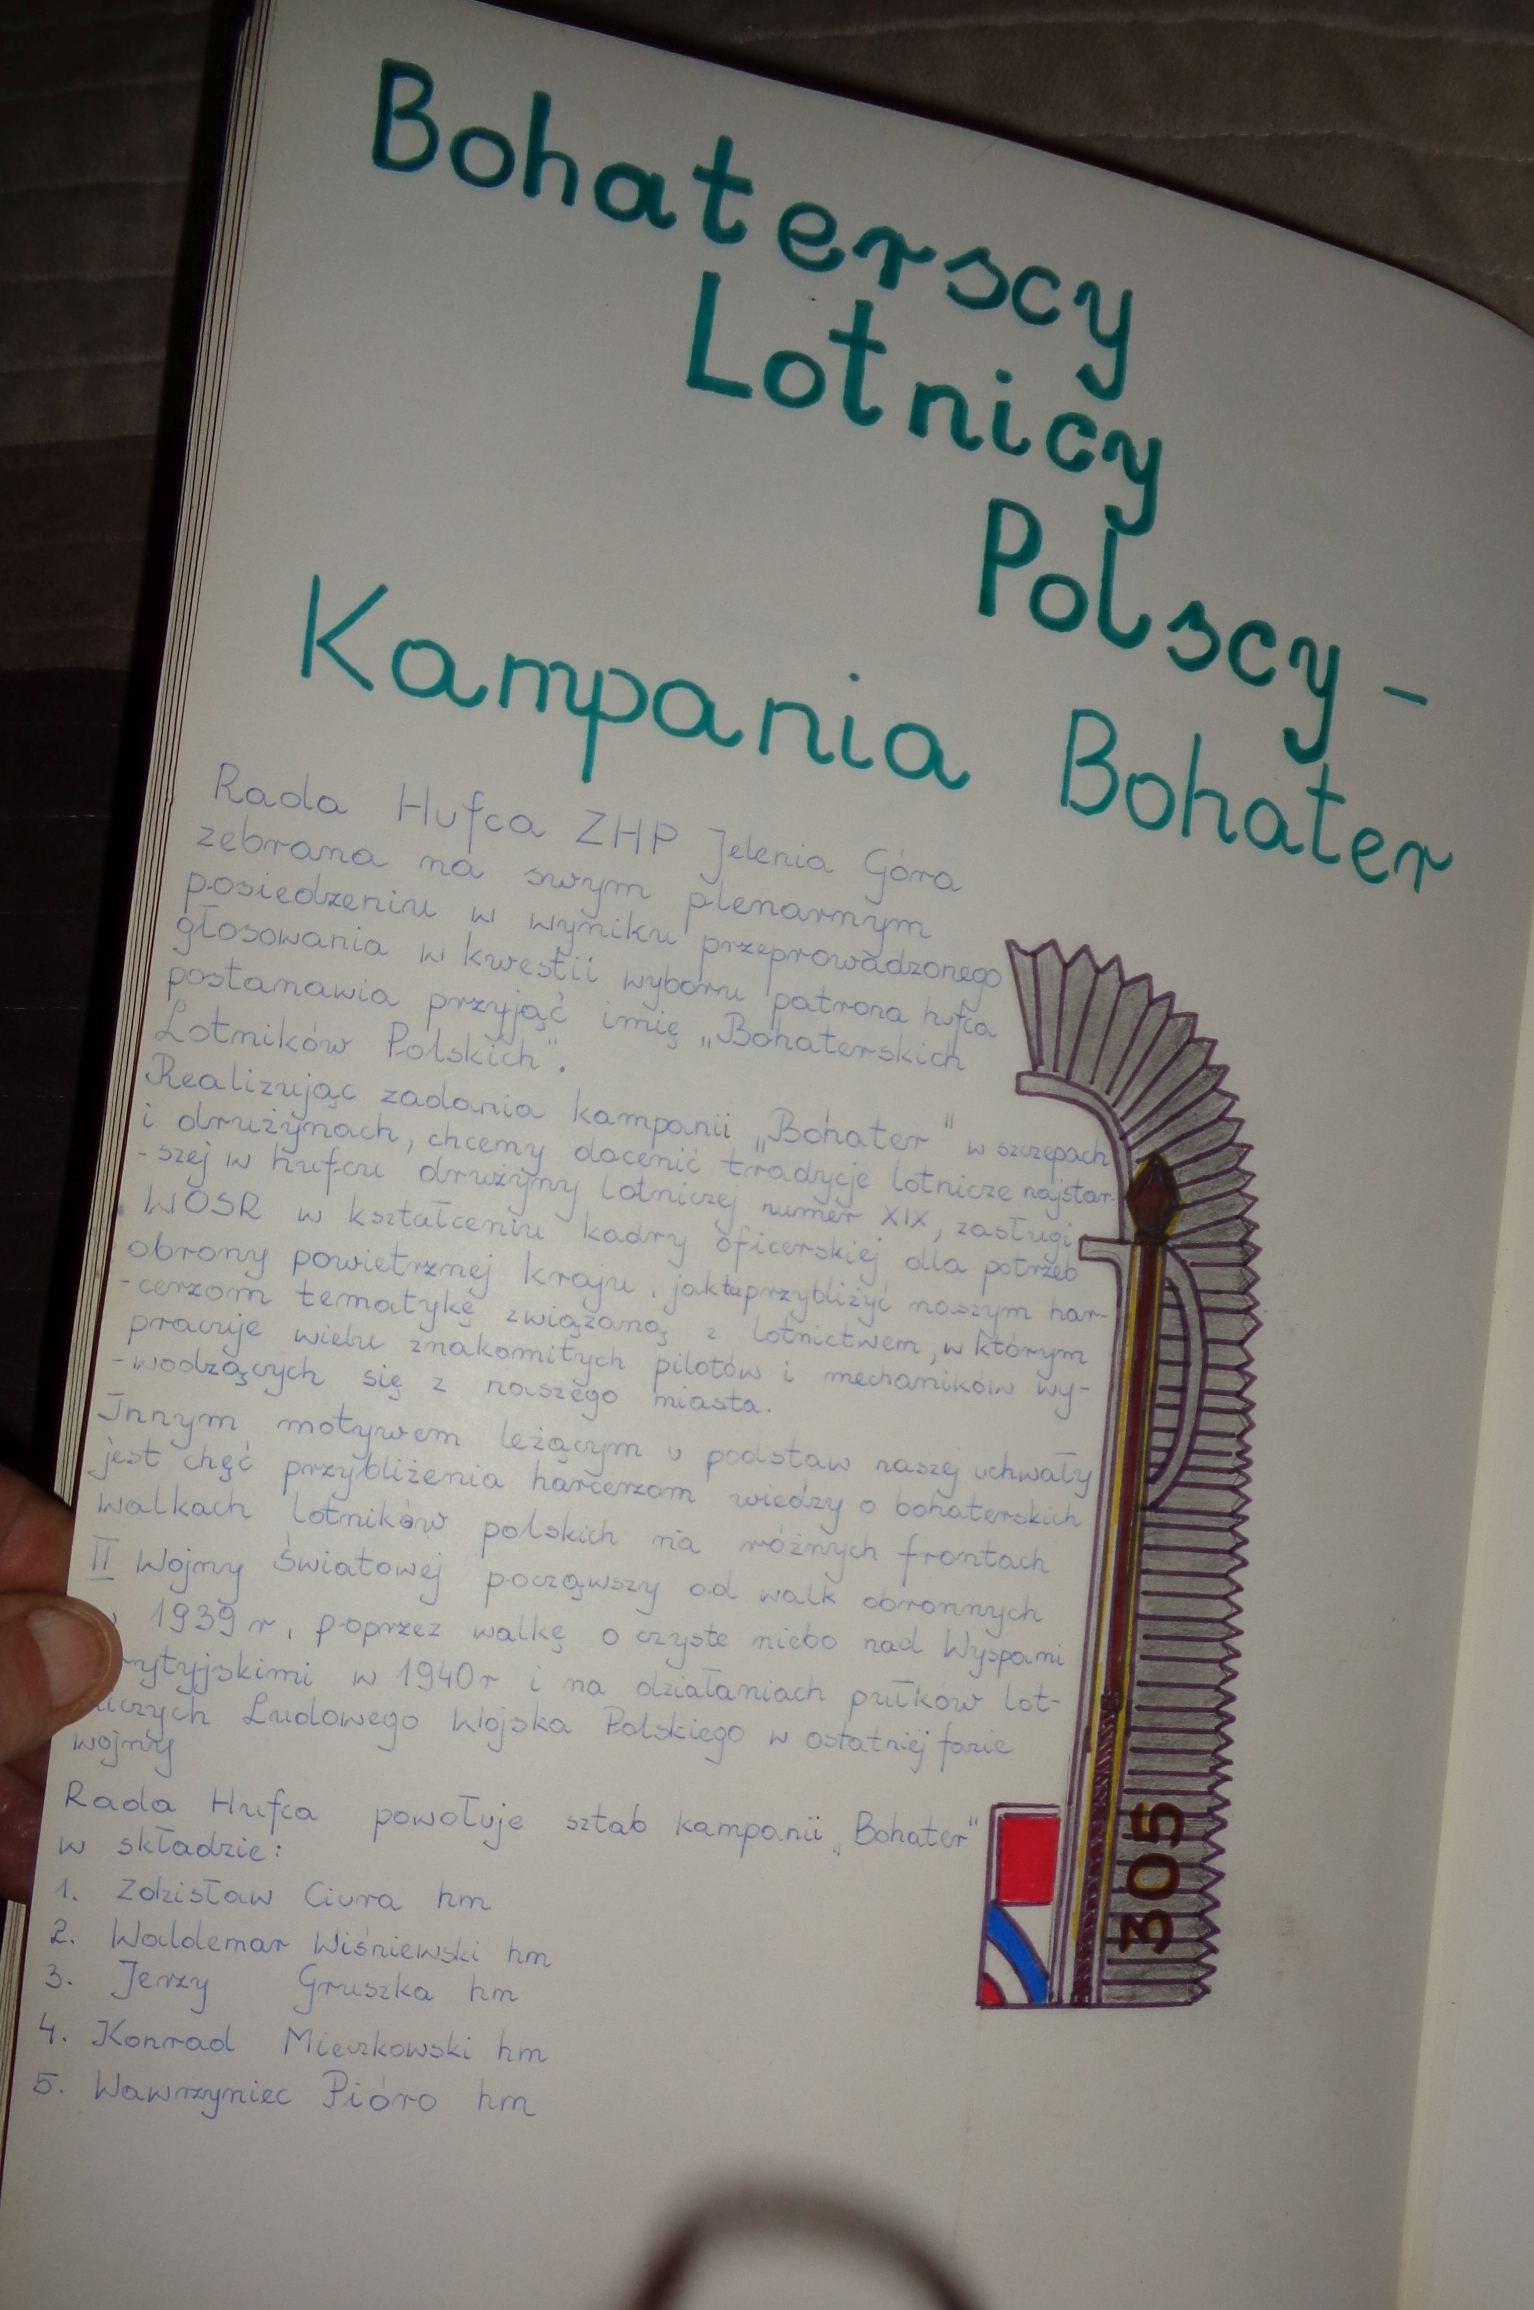 Bohaterscy
Lotnicy
Polscy -
Kampania Bohater
Rada Hufca ZHP Jelenia Góra
zebrana na swym plenarnym
posiedzeniu w wyniku przeprowadzonego
głosowania w kwestii wyboru patrona hufca
postanawia przyjąć imię „Bohaterskich
Lotników Polskich".
Realizując zadania kampanii „Bohater" w szczepach
i drużynach, chcemy docenić tradycje lotnicze najstar-
-szej w hufcu drużyny lotniczej numer XIX, zasługi
WOSR w kształceniu kadry oficerskiej dla potrzeb
obrony powietrznej kraju, jak też przybliżyć naszym har-
-cerzom tematykę związaną z lotnictwem, w którym
pracuje wielu znakomitych pilotów i mechaników wy-
-wodzących się z naszego miasta.
Innym motywem leżącym u podstaw naszej uchwały
jest chęć przybliżenia harcerzom wiedzy o bohaterskich
walkach lotników polskich na różnych frontach
II Wojny Światowej począwszy od walk obronnych
1939 r, poprzez walkę o czyste niebo nad Wyspami
rytyjskimi w 1940 r i na działaniach pułków lot-
niczych Ludowego Wojska Polskiego w ostatniej fazie
wojny
Rada Hufca powołuje sztab kampanii „Bohater"
w składzie:
1. Zdzisław Ciura hm
2. Waldemar Wiśniewski hm
3. Jerzy Gruszka hm
4. Konrad Mieczkowski hm
5. Wawrzyniec Pióro hm
305